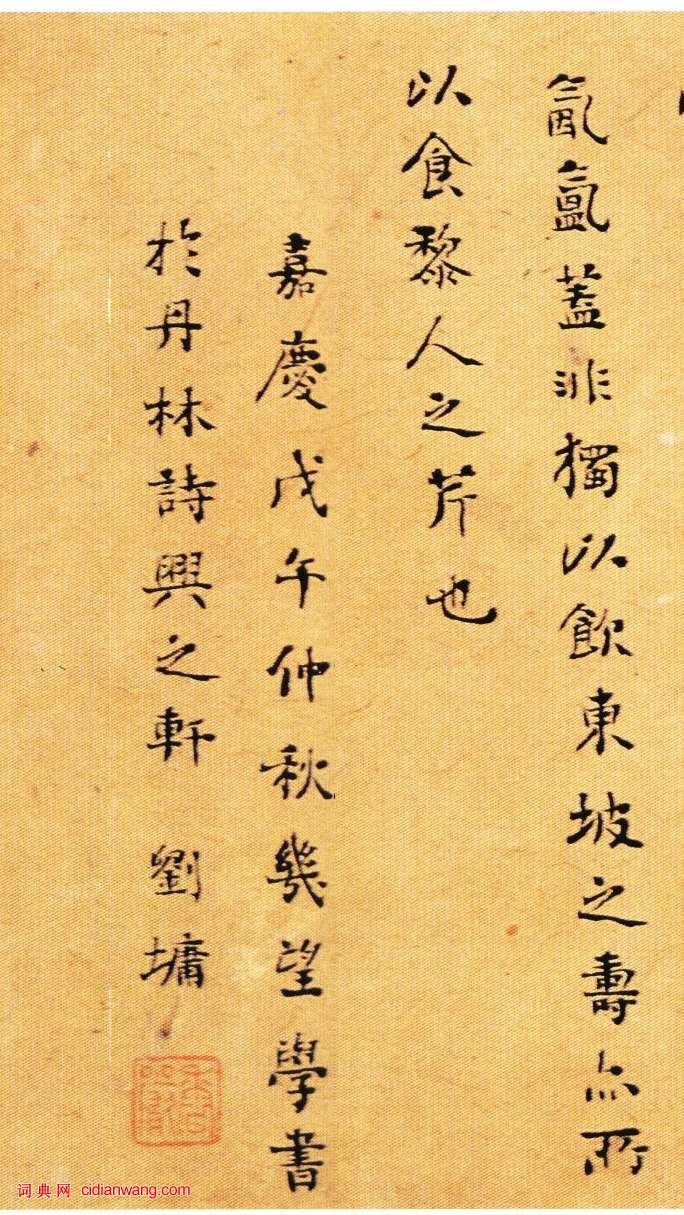 氤氳蓋非獨以飲東坡之壽亦所
以食黎人之芹也
嘉慶戊午仲秋幾望學書
於丹林詩興之軒 劉墉
词典网 cidianwang.com